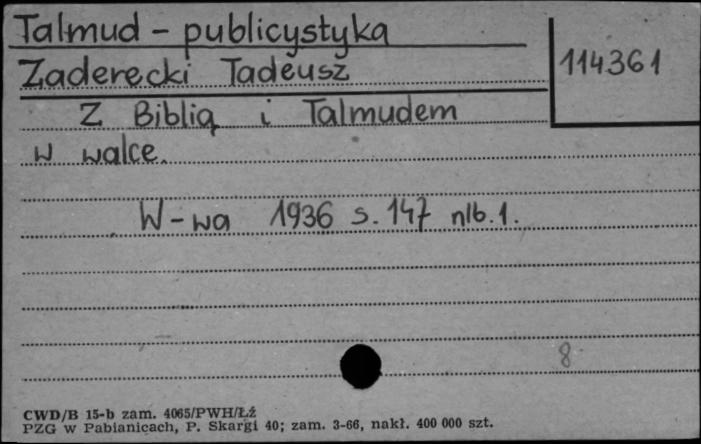 Talmud - publicystyka
114361
Zaderecki Tadeusz
Z Biblią i Talmudem
w walce.
W-wa 1936 s. 147 nlb. 1.
8
CWD/B 15-b zam. 4065/PWH/Łź
PZG w Pabianicach, P. Skargi 40; zam. 3-66, nakł. 400 000 szt.